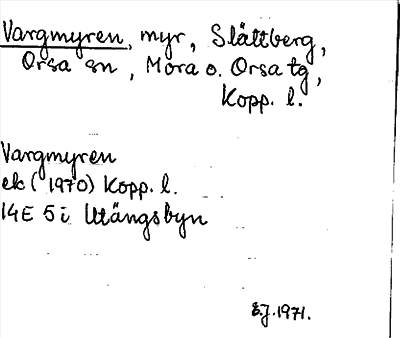 Vargmyren, myr, Slättberg,
Orsa sn, Mora o. Orsa tg,
Kopp. l.
Vargmyren
ek (1970) Kopp. l.
14E 5i Utängsbyn
E.J. 1971.